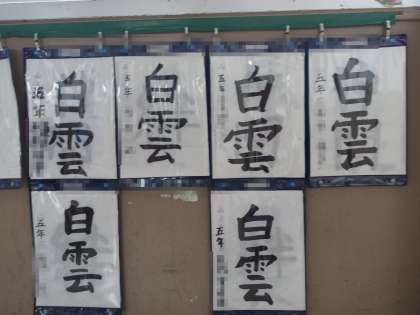 白雲
五年
白雲
五年
白雲
五年
白雲
五年
白雲
五年
白雲
五年